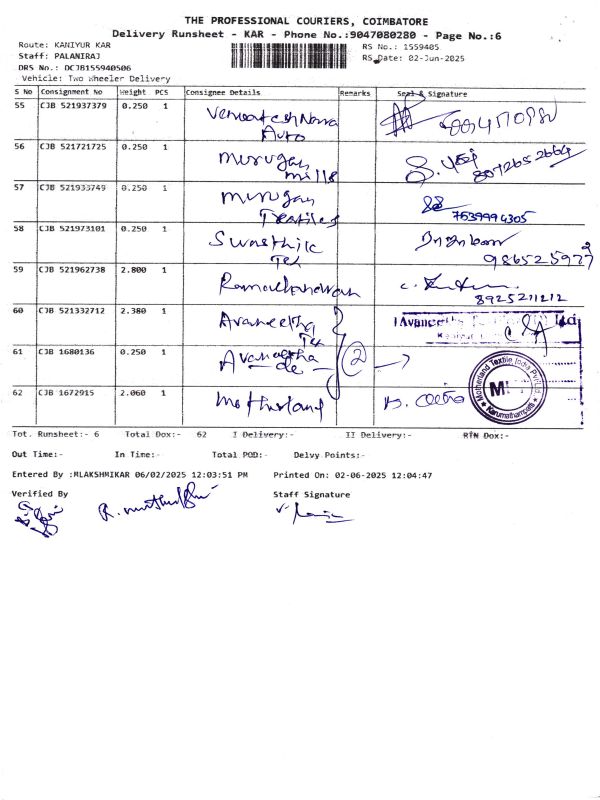 THE PROFESSIONAL COURIERS, COIMBATORE
Delivery Runsheet - KAR - Phone No.:9047080280 - Page No.:6
Route: KANIYUR KAR
RS No.: 1559405
Staff: PALANIRAJ
RS Date: 02-Jun-2025
DRS No.: DCJB1559405O6
Vehicle: Two Wheeler Delivery
S No Consignment No Weight PCS Consignee Details Remarks Seal & Signature
55 CJB 521937379 0.250 1
Auto
56 CJB 521721725 0.250 1 Murugan
mills
8072652664
57 CJB 521933749 0.250 1 Murugan
Textiles
7539994305
58 CJB 521973101 0.250 1 Swasthik
Tex
59 CJB 521962738 2.800 1
8925211212
60 CJB 521332712 2.380 1 Avaneetha
Tex
61 CJB 1680136 0.250 1 Avaneetha
- de - 2
62 CJB 1672915 2.060 1 Motherland
Motherland Textile India Pvt Ltd
Karumathampatti
Tot. Runsheet:- 6 Total Dox:- 62 I Delivery:- II Delivery:- RTN Dox:-
Out Time:- In Time:- Total POD:- Delvy Points:-
Entered By :MLAKSHMIKAR 06/02/2025 12:03:51 PM Printed On: 02-06-2025 12:04:47
Verified By Staff Signature